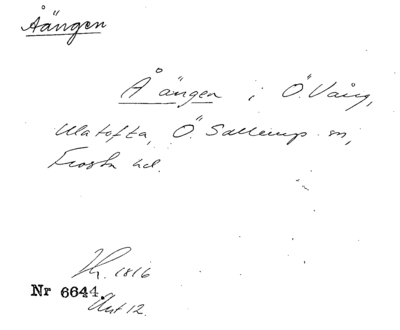 Åängen
Å ängen i Ö. Vång,
Ulatofta, Ö. Sallerup sn,
Frosta hd.
1816
Nr 6644.
Akt 12.